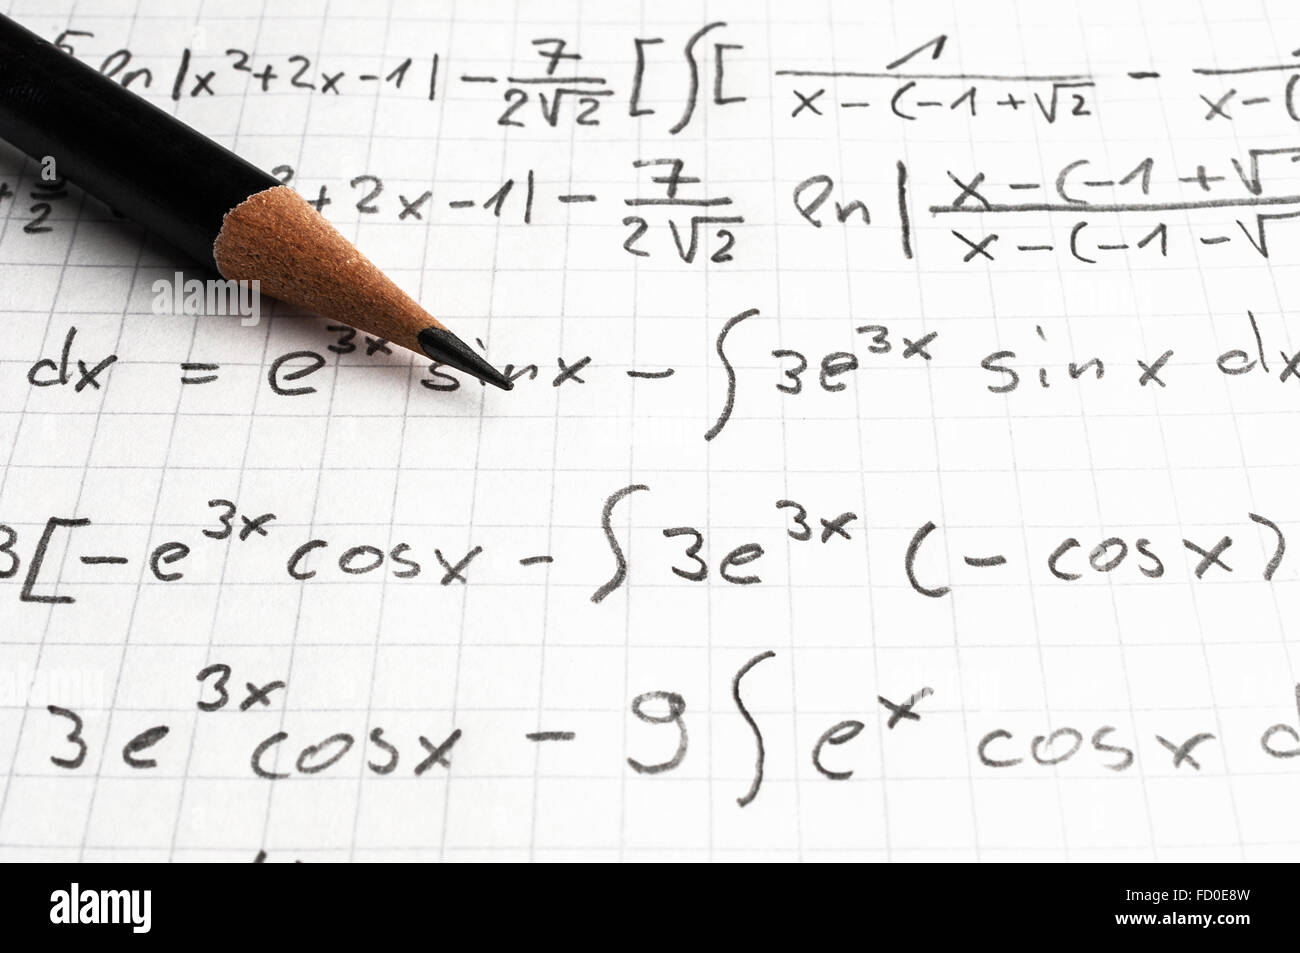 ln |x²+2x-1| - 7/(2√2) [∫[ 1/(x-(-1+√2) - /(x-(
+ 5/2 ²+2x-1| - 7/(2√2) ln | (x-(-1+√2)/(x-(-1-√
dx = e^3x sinx - ∫ 3e^3x sinx dx
3[-e^3x cosx - ∫ 3e^3x (-cosx)
3e^3x cosx - 9 ∫ e^x cosx d
alamy
Image ID: FD0E8W
www.alamy.com